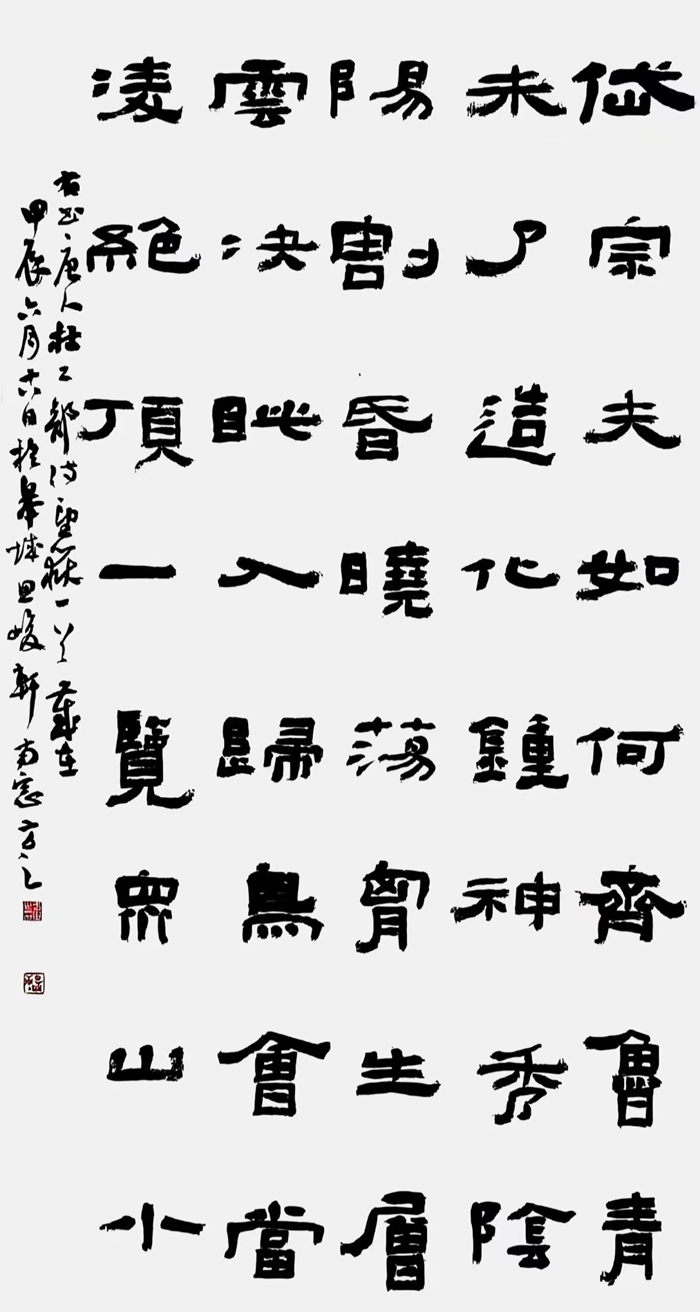 岱宗夫如何齊魯青
未了造化鍾神秀陰
陽割昏曉蕩胷生層
雲决眦入歸鳥會當
凌絕頂一覽眾山小
右书唐人杜工部诗望嶽一首歲在
甲辰六月日於皋城峻軒南窓